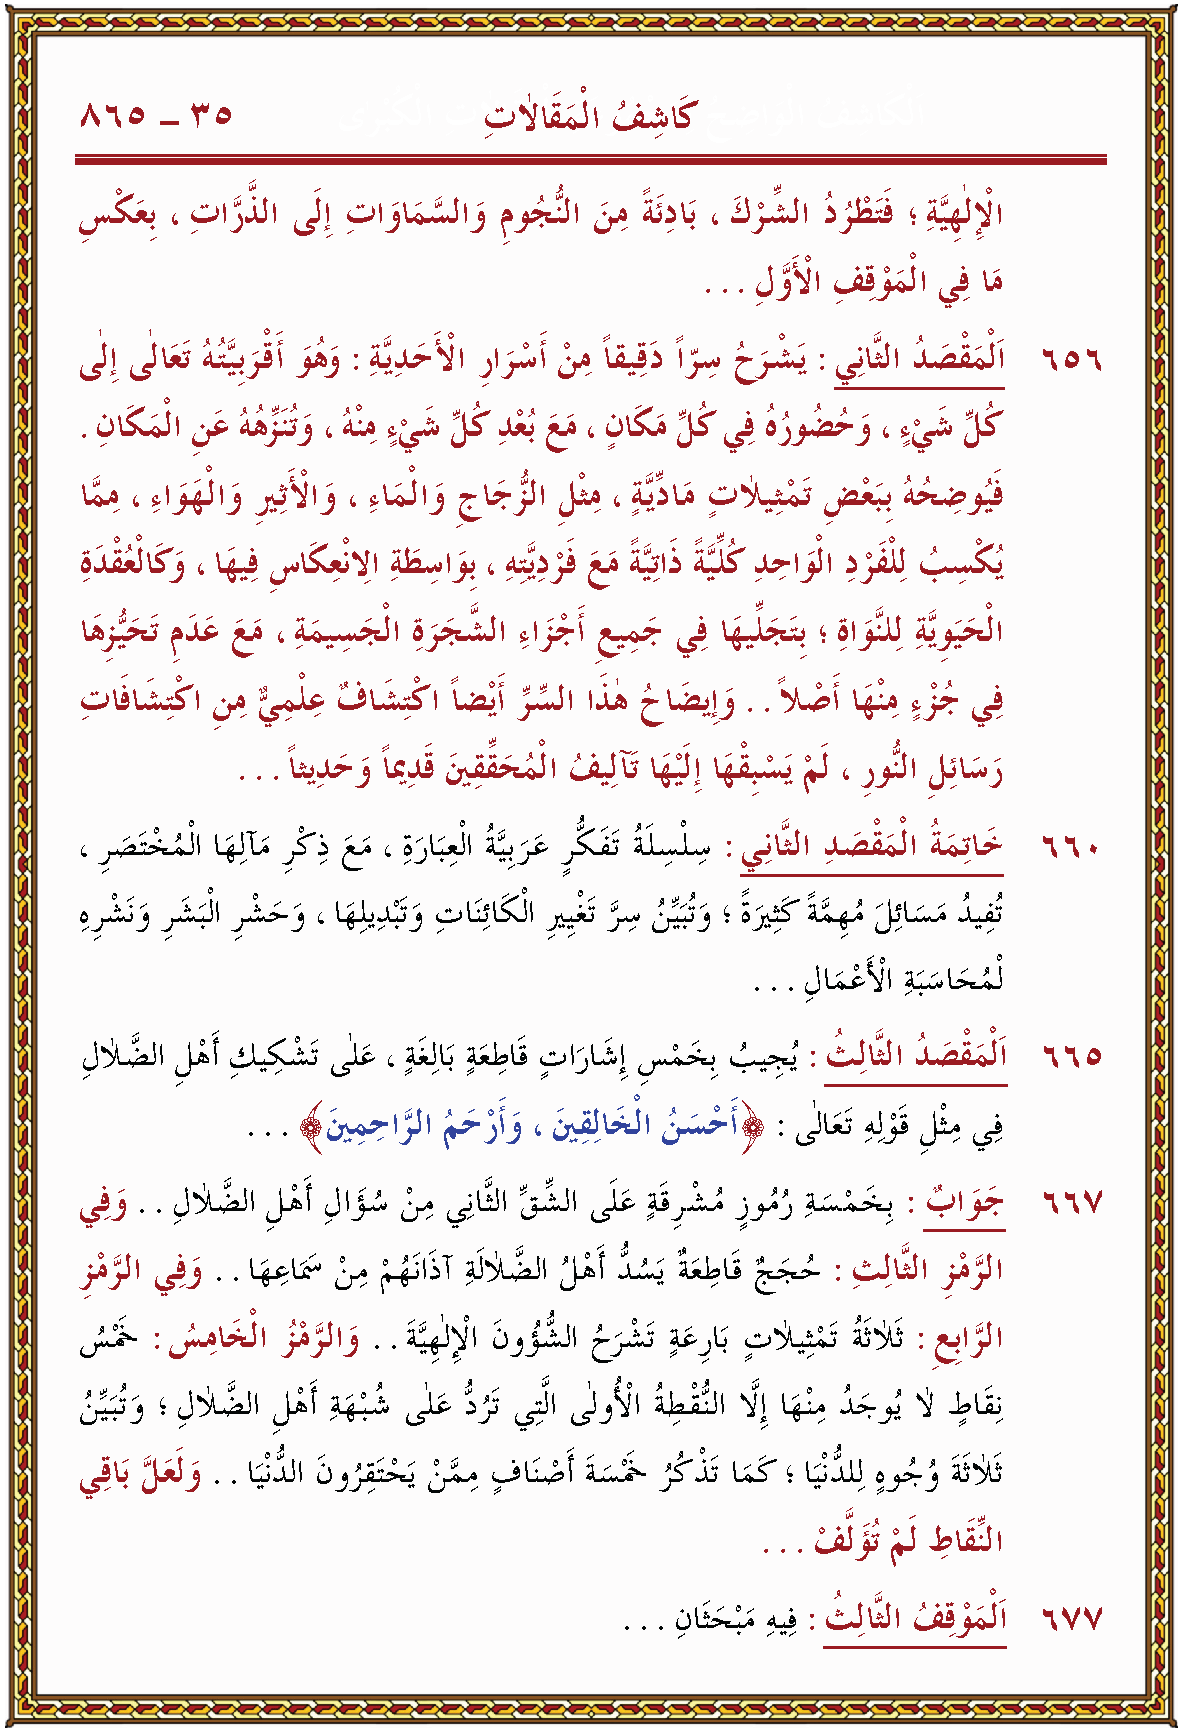 كَاشِفُ الْمَقَالاٰتِ ٣٥ ــ ٨٦٥
الْإِلٰهِيَّةِ ؛ فَتَطْرُدُ الشِّرْكَ ، بَادِئَةً مِنَ النُّجُومِ وَالسَّمَاوَاتِ إِلَى الذَّرَّاتِ ، بِعَكْسِ
مَا فِي الْمَوْقِفِ الْأَوَّلِ . . .
٦٥٦ اَلْمَقْصَدُ الثَّانِي : يَشْرَحُ سِرّاً دَقِيقاً مِنْ أَسْرَارِ الْأَحَدِيَّةِ : وَهُوَ أَقْرَبِيَّتُهُ تَعَالٰى إِلٰى
كُلِّ شَيْءٍ ، وَحُضُورُهُ فِي كُلِّ مَكَانٍ ، مَعَ بُعْدِ كُلِّ شَيْءٍ مِنْهُ ، وَتُنَزِّهُهُ عَنِ الْمَكَانِ .
فَيُوضِحُهُ بِبَعْضِ تَمْثِيلاٰتٍ مَادِّيَّةٍ ، مِثْلِ الزُّجَاجِ وَالْمَاءِ ، وَالْأَثِيرِ وَالْهَوَاءِ ، مِمَّا
يُكْسِبُ لِلْفَرْدِ الْوَاحِدِ كُلِّيَّةً ذَاتِيَّةً مَعَ فَرْدِيَّتِهِ ، بِوَاسِطَةِ الاِنْعِكَاسِ فِيهَا ، وَكَالْعُقْدَةِ
الْحَيَوِيَّةِ لِلنَّوَاةِ ؛ بِتَجَلِّيهَا فِي جَمِيعِ أَجْزَاءِ الشَّجَرَةِ الْجَسِيمَةِ ، مَعَ عَدَمِ تَحَيُّزِهَا
فِي جُزْءٍ مِنْهَا أَصْلاً . . وَإِيضَاحُ هٰذَا السِّرِّ أَيْضاً اكْتِشَافٌ عِلْمِيٌّ مِنِ اكْتِشَافَاتِ
رَسَائِلِ النُّورِ ، لَمْ يَسْبِقْهَا إِلَيْهَا تَآلِيفُ الْمُحَقِّقِينَ قَدِيماً وَحَدِيثاً . . .
٦٦٠ خَاتِمَةُ الْمَقْصَدِ الثَّانِي : سِلْسِلَةُ تَفَكُّرٍ عَرَبِيَّةُ الْعِبَارَةِ ، مَعَ ذِكْرِ مَآلِهَا الْمُخْتَصَرِ ،
تُفِيدُ مَسَائِلَ مُهِمَّةً كَثِيرَةً ؛ وَتُبَيِّنُ سِرَّ تَغْيِيرِ الْكَائِنَاتِ وَتَبْدِيلِهَا ، وَحَشْرِ الْبَشَرِ وَنَشْرِهِ
لْمُحَاسَبَةِ الْأَعْمَالِ . . .
٦٦٥ اَلْمَقْصَدُ الثَّالِثُ : يُجِيبُ بِخَمْسِ إِشَارَاتٍ قَاطِعَةٍ بَالِغَةٍ ، عَلٰى تَشْكِيكِ أَهْلِ الضَّلاٰلِ
فِي مِثْلِ قَوْلِهِ تَعَالٰى : ﴿أَحْسَنُ الْخَالِقِينَ ، وَأَرْحَمُ الرَّاحِمِينَ﴾ . . .
٦٦٧ جَوَابٌ : بِخَمْسَةِ رُمُوزٍ مُشْرِقَةٍ عَلَى الشِّقِّ الثَّانِي مِنْ سُؤَالِ أَهْلِ الضَّلاٰلِ . . وَفِي
الرَّمْزِ الثَّالِثِ : حُجَجٌ قَاطِعَةٌ يَسُدُّ أَهْلُ الضَّلاٰلَةِ آذَانَهُمْ مِنْ سَمَاعِهَا . . وَفِي الرَّمْزِ
الرَّابِعِ : ثَلاٰثَةُ تَمْثِيلاٰتٍ بَارِعَةٍ تَشْرَحُ الشُّؤُونَ الْإِلٰهِيَّةَ . . وَالرَّمْزُ الْخَامِسُ : خَمْسُ
نِقَاطٍ لاٰ يُوجَدُ مِنْهَا إِلاَّ النُّقْطِةُ الْأُولٰى الَّتِي تَرُدُّ عَلٰى شُبْهَةِ أَهْلِ الضَّلاٰلِ ؛ وَتُبَيِّنُ
ثَلاٰثَةَ وُجُوهٍ لِلدُّنْيَا ؛ كَمَا تَذْكُرُ خَمْسَةَ أَصْنَافٍ مِمَّنْ يَحْتَقِرُونَ الدُّنْيَا . . وَلَعَلَّ بَاقِي
النِّقَاطِ لَمْ تُؤَلَّفْ . . .
٦٧٧ اَلْمَوْقِفُ الثَّالِثُ : فِيهِ مَبْحَثَانِ . . .